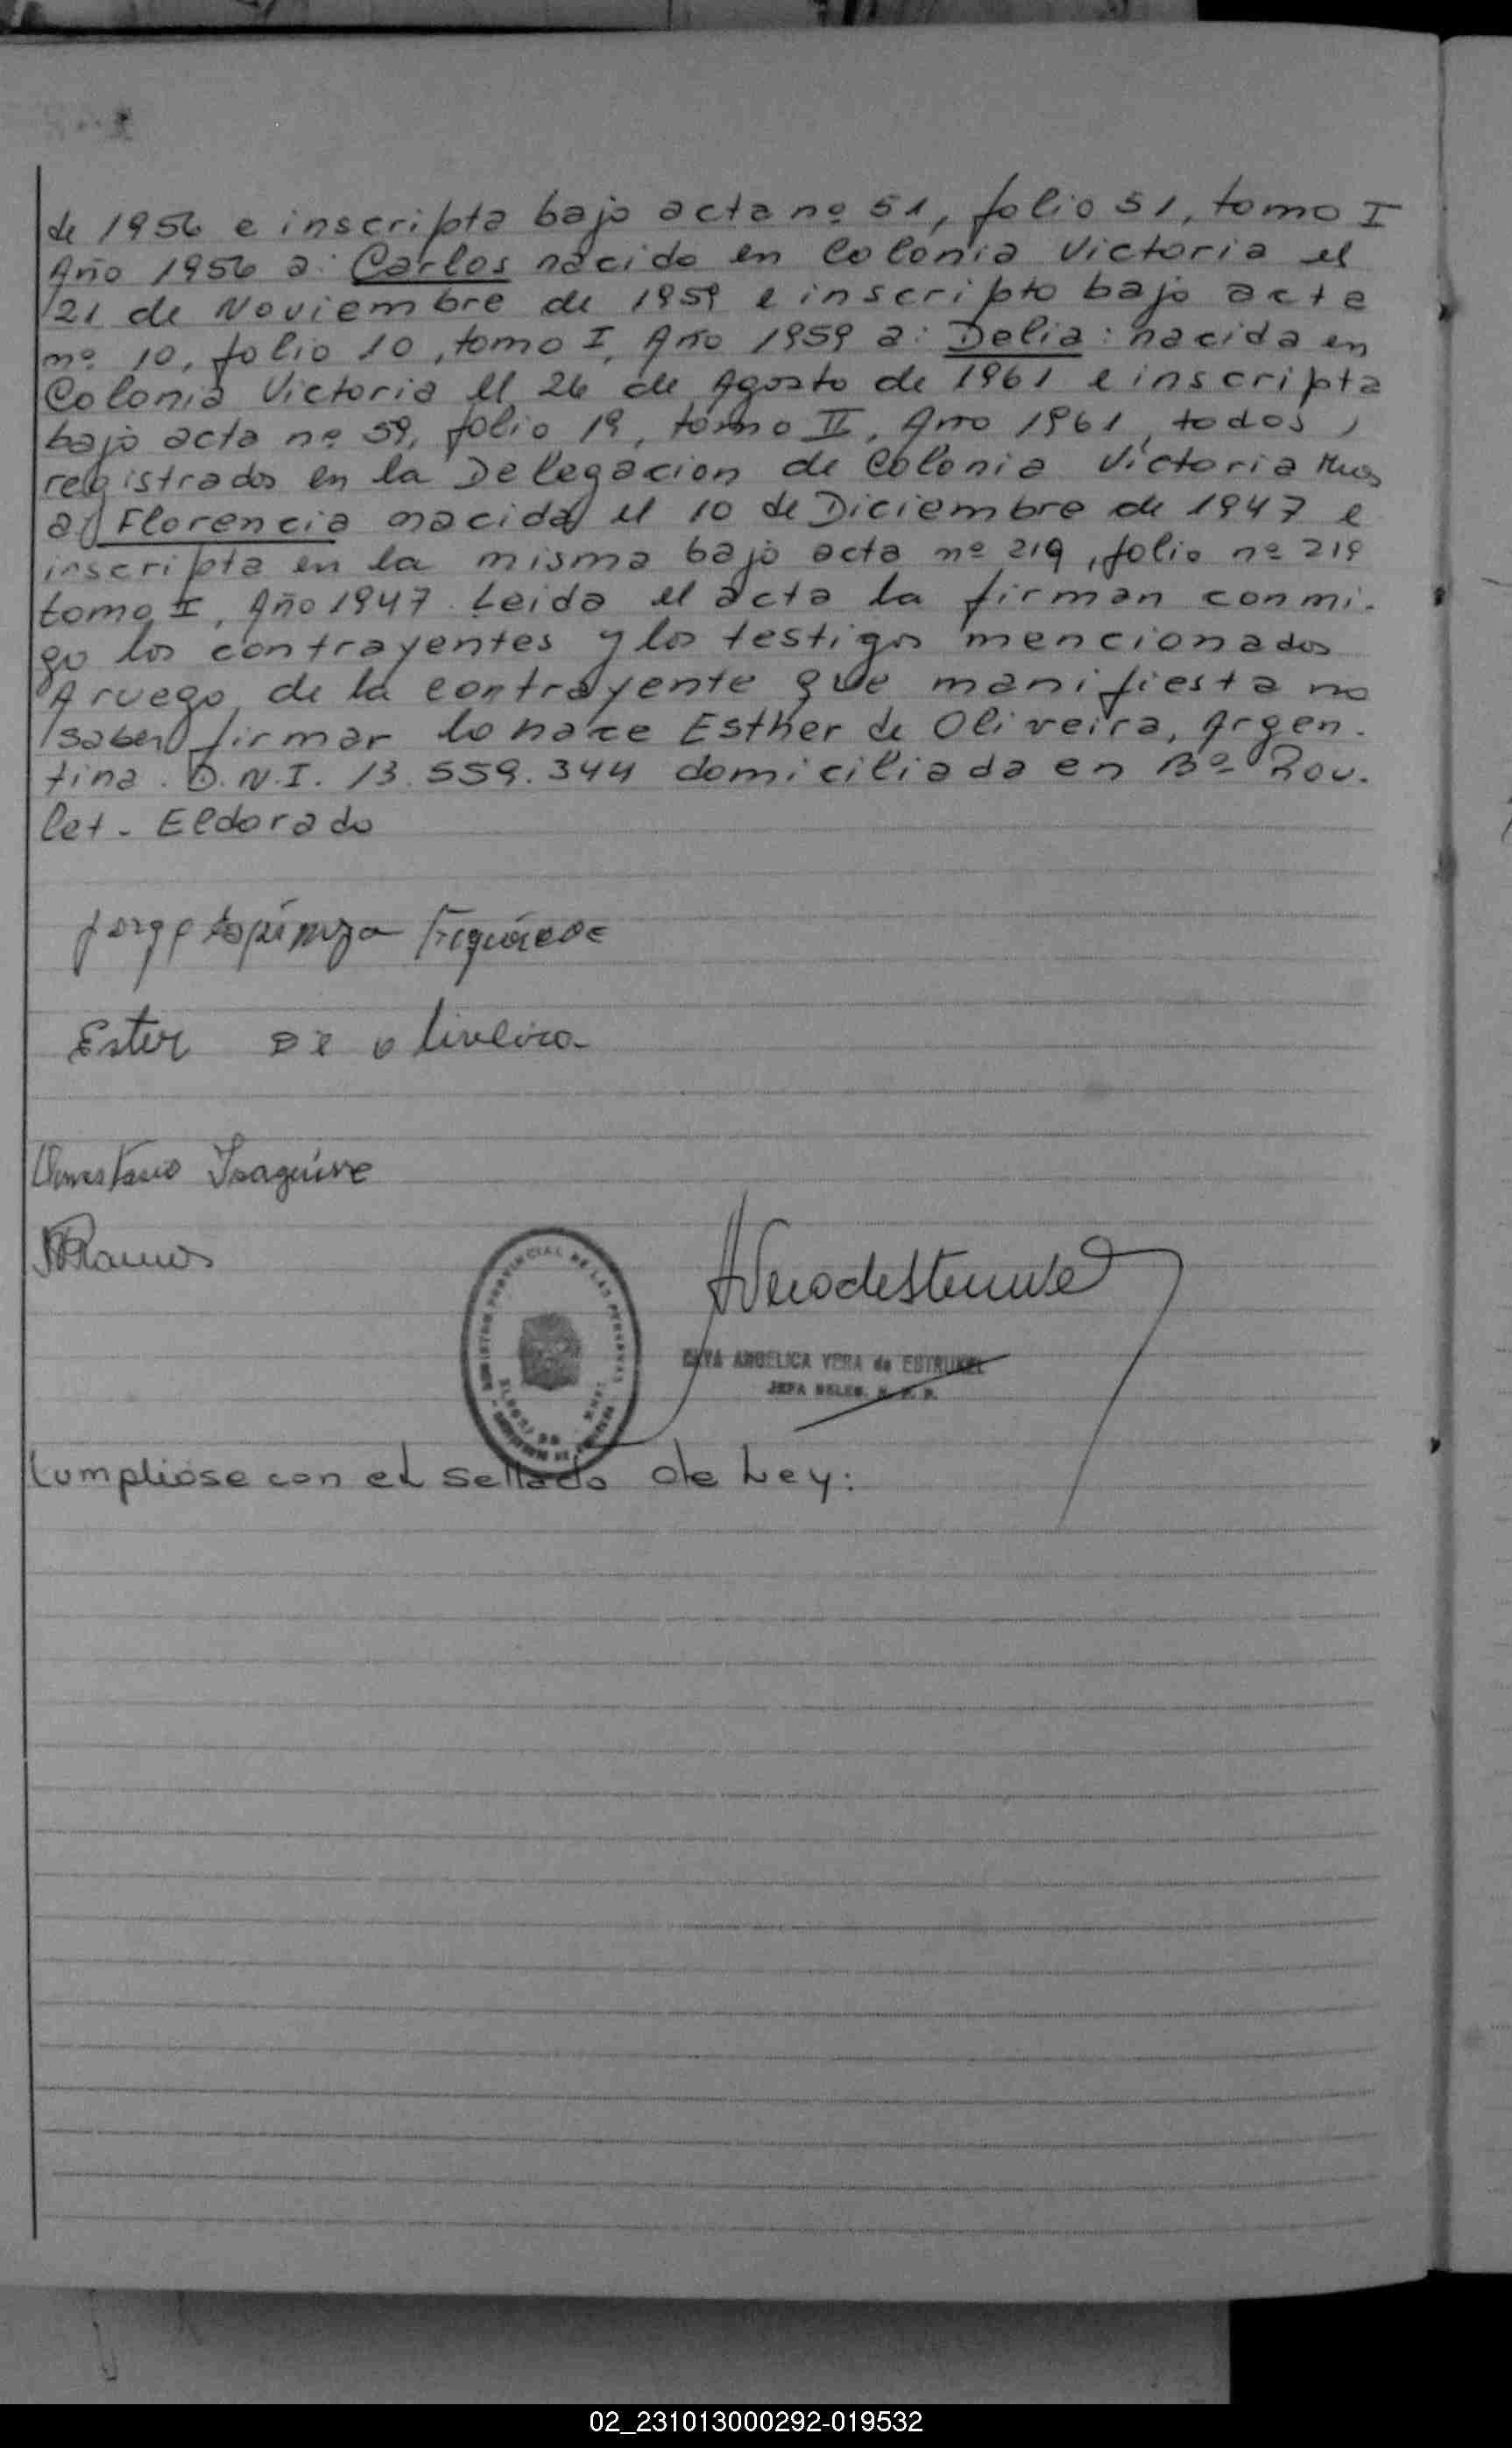 de 1956 e inscripta bajo acta nº 51, folio 51, tomo I
Año 1956 a: Carlos nacido en Colonia Victoria el
21 de Noviembre de 1959 e inscripto bajo acta
nº 10, folio 10, tomo I, Año 1959 a: Delia: nacida en
Colonia Victoria el 26 de Agosto de 1961 e inscripta
bajo acta nº 59, folio 19, tomo II, Año 1961, todos
registrados en la Delegacion de Colonia Victoria
a Florencia nacida el 10 de Diciembre de 1947 e
inscripta en la misma bajo acta nº 219, folio nº 219
tomo I, Año 1947. Leida el acta la firman conmi-
go los contrayentes y los testigos mencionados
A ruego de la contrayente que manifiesta no
saber firmar lo hace Esther de Oliveira, Argen-
tina. D.N.I. 13.559.344 domiciliada en Bº Rou-
let - Eldorado
Jorge Figueroa
Ester de oliveira
Isaguirre
Ramos
REGISTRO PROVINCIAL DE LAS PERSONAS
ANGELICA VERA de ESTRUKEL
JEFA DELEG. R. P. P.
Cumpliose con el sellado de Ley:
02_231013000292-019532